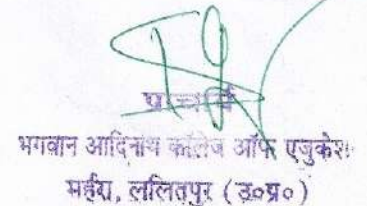 प्राचार्य
भगवान आदिनाथ कॉलेज ऑफ एजुकेश
महर्रा, ललितपुर (उ०प्र०)